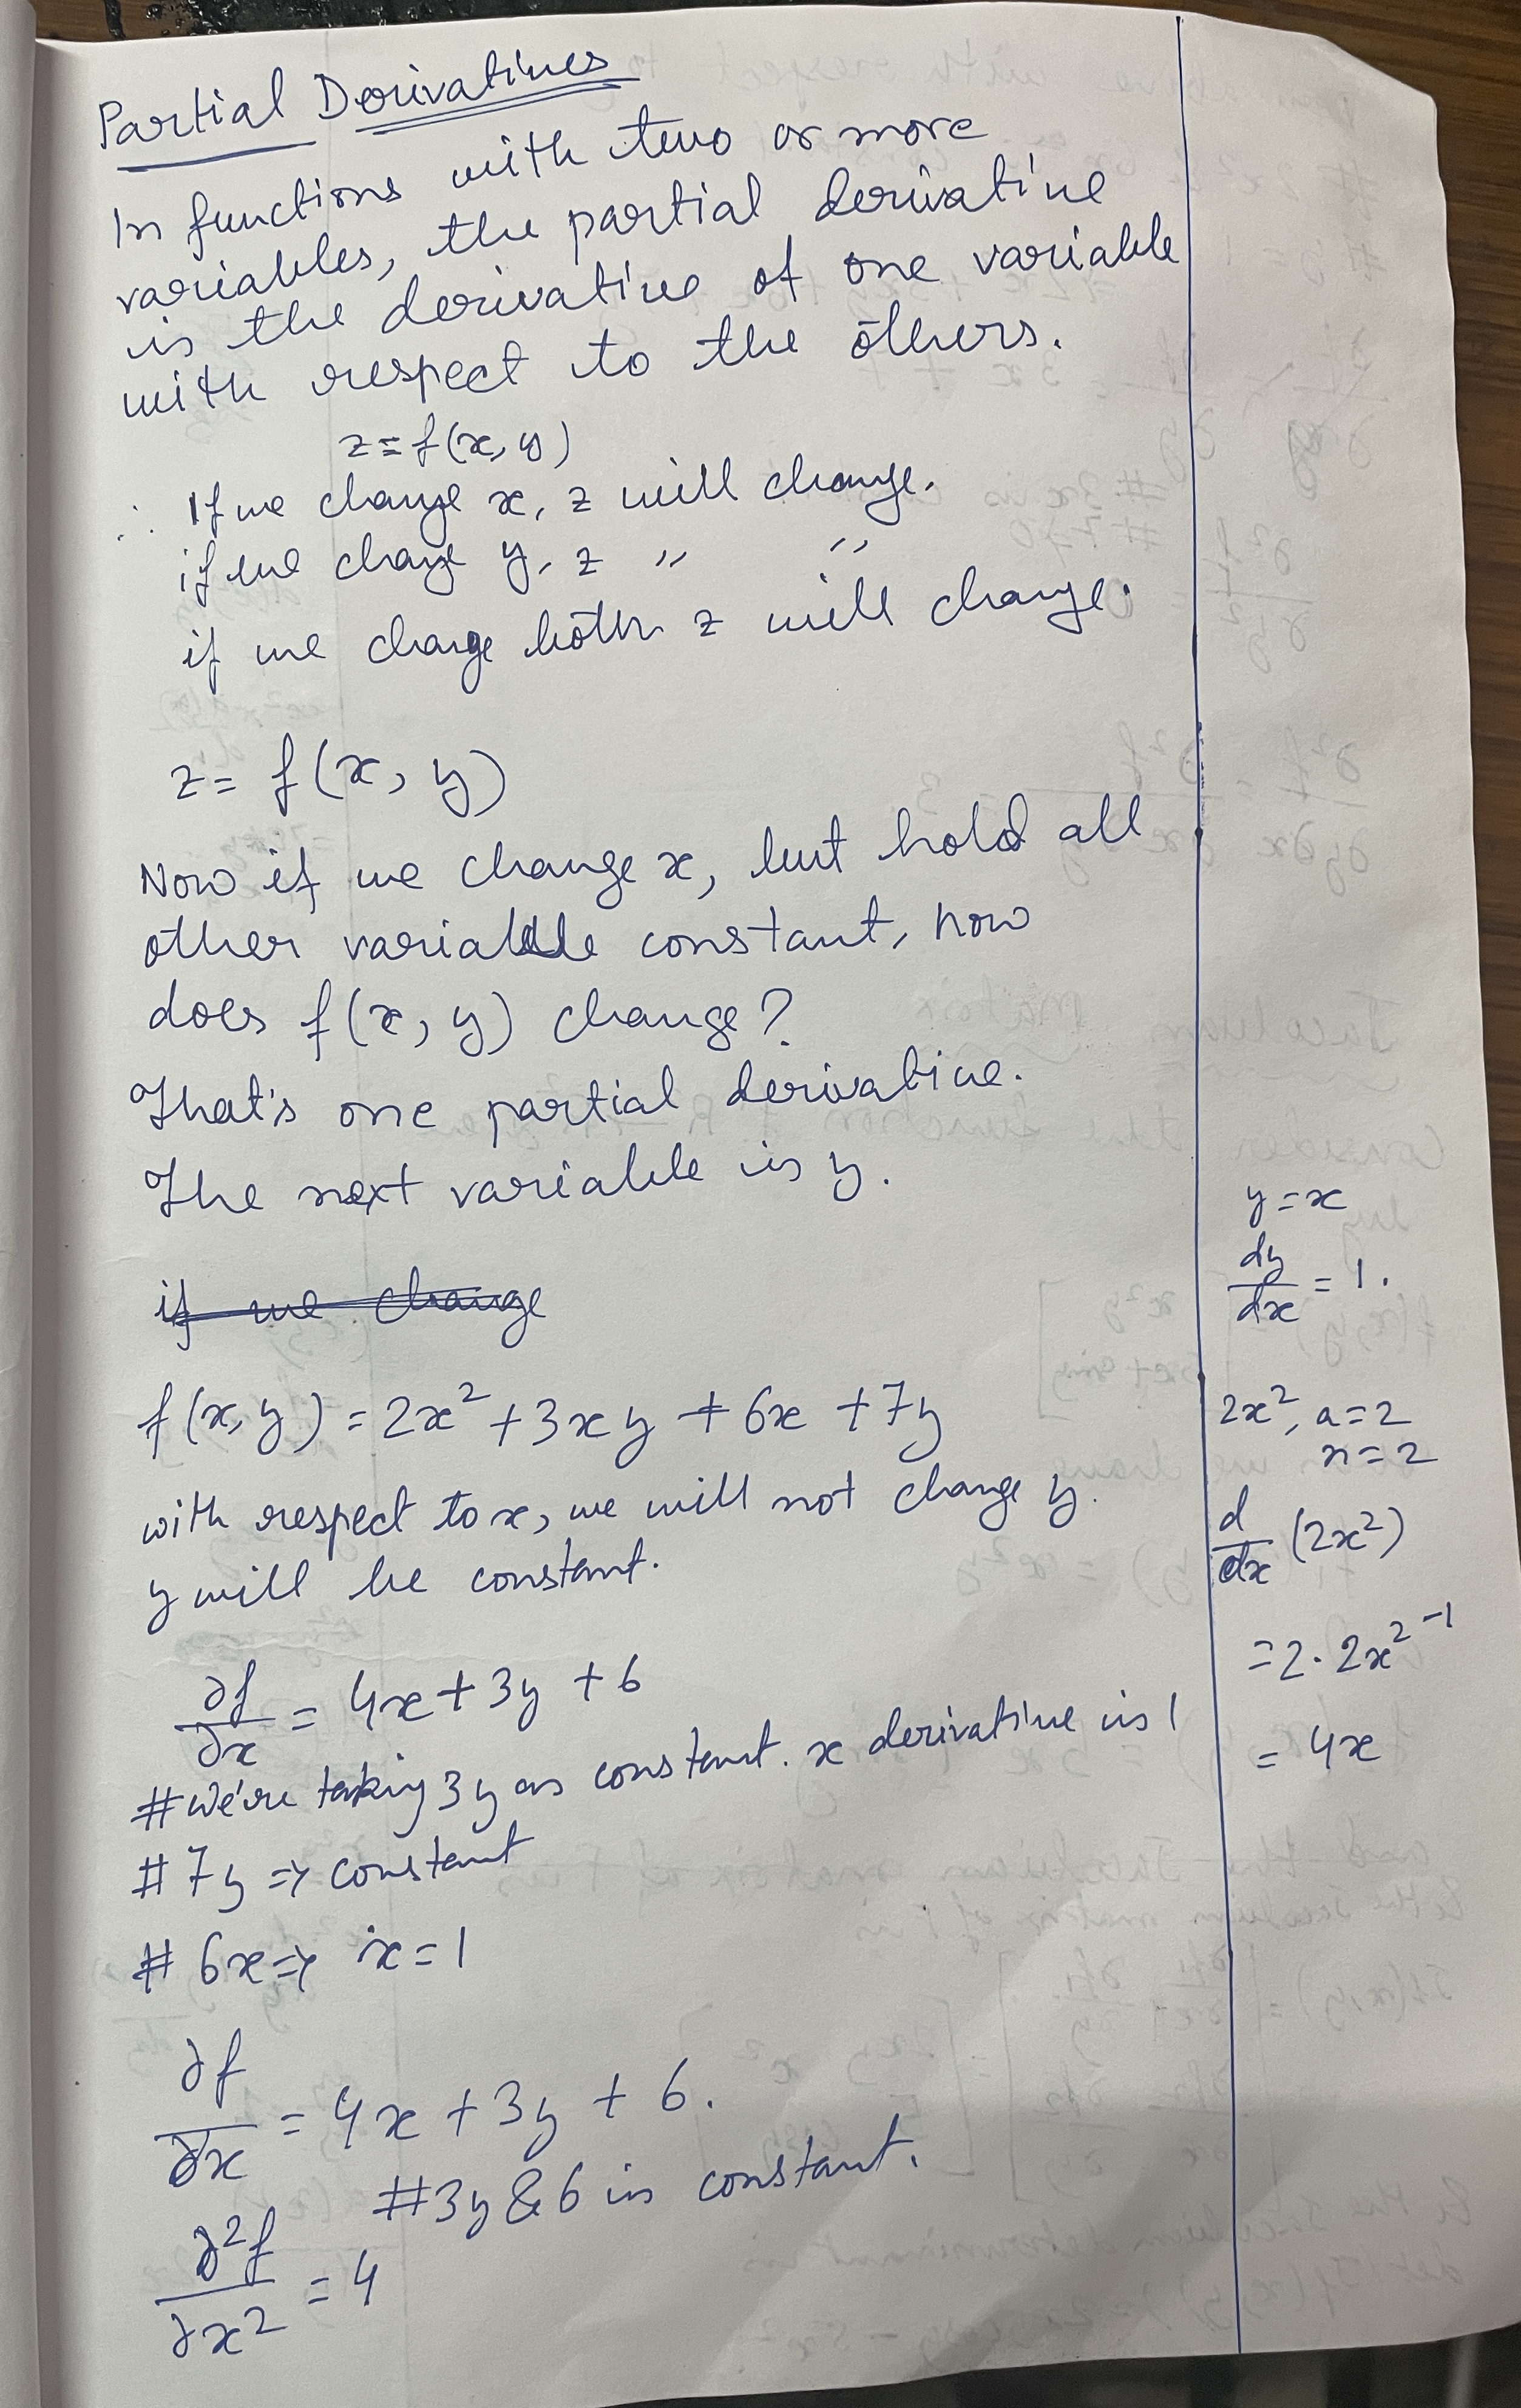 Partial Derivatives
In functions with two or more
variables, the partial derivative
is the derivative of one variable
with respect to the others.
z = f(x, y)
∴ If we change x, z will change.
if we change y, z " "
if we change both z will change.
z = f(x, y)
Now if we change x, but hold all
other variable constant, how
does f(x, y) change?
That's one partial derivative.
The next variable is y.
if we change
f(x, y) = 2x² + 3xy + 6x + 7y
with respect to x, we will not change y.
y will be constant.
∂f/∂x = 4x + 3y + 6
# We're taking 3y as constant. x derivative is 1
# 7y => constant
# 6x => x = 1
∂f/∂x = 4x + 3y + 6.
# 3y & 6 is constant.
∂²f/∂x² = 4
y = x
dy/dx = 1.
2x², a = 2
n = 2
d/dx (2x²)
= 2 · 2x²⁻¹
= 4x